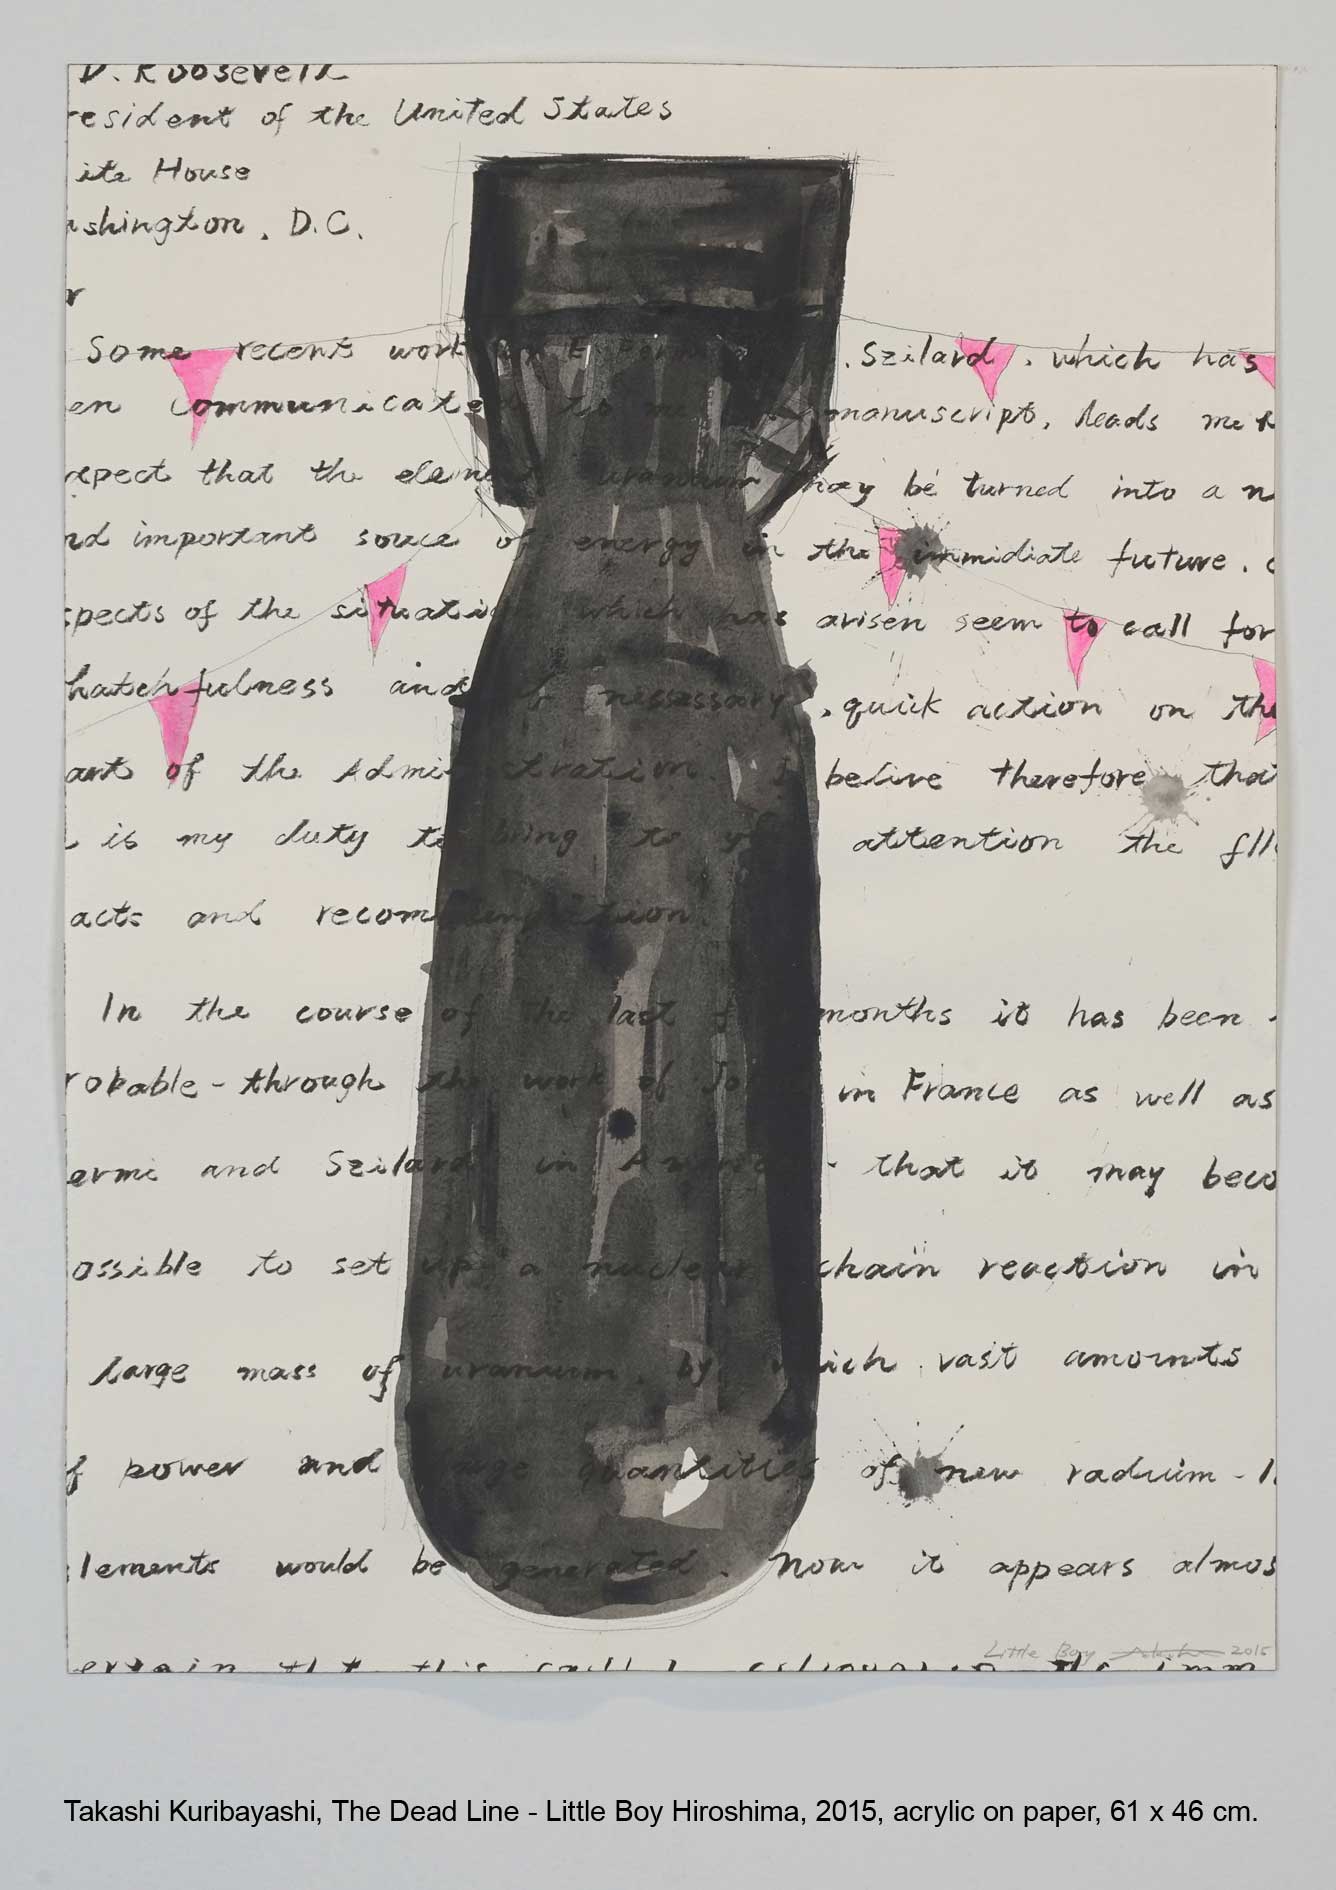 D. Roosevelt
resident of the United States
ite House
ashington, D.C.
r
Some recent work E Fermi . Szilard, which has
en communicated to me manuscript, leads me t
xpect that the element uranium may be turned into a n
nd important souce of energy in the immidiate future.
spects of the situation which has arisen seem to call for
hatchfulness and if nessessary, quick action on the
art of the Administration. I belive therefore that
is my duty to bring to yo attention the fll
acts and recommendation.
In the course of the last f months it has been
robable - through the work of Jo in France as well as
ermi and Szilard in America - that it may beco
ossible to set up a nuclear chain reaction in
large mass of uranium, by which vast amounts
f power and large quantities of new radium - l
lements would be generated. Now it appears almos
Little Boy 2015
ertain that this could
Takashi Kuribayashi, The Dead Line - Little Boy Hiroshima, 2015, acrylic on paper, 61 x 46 cm.